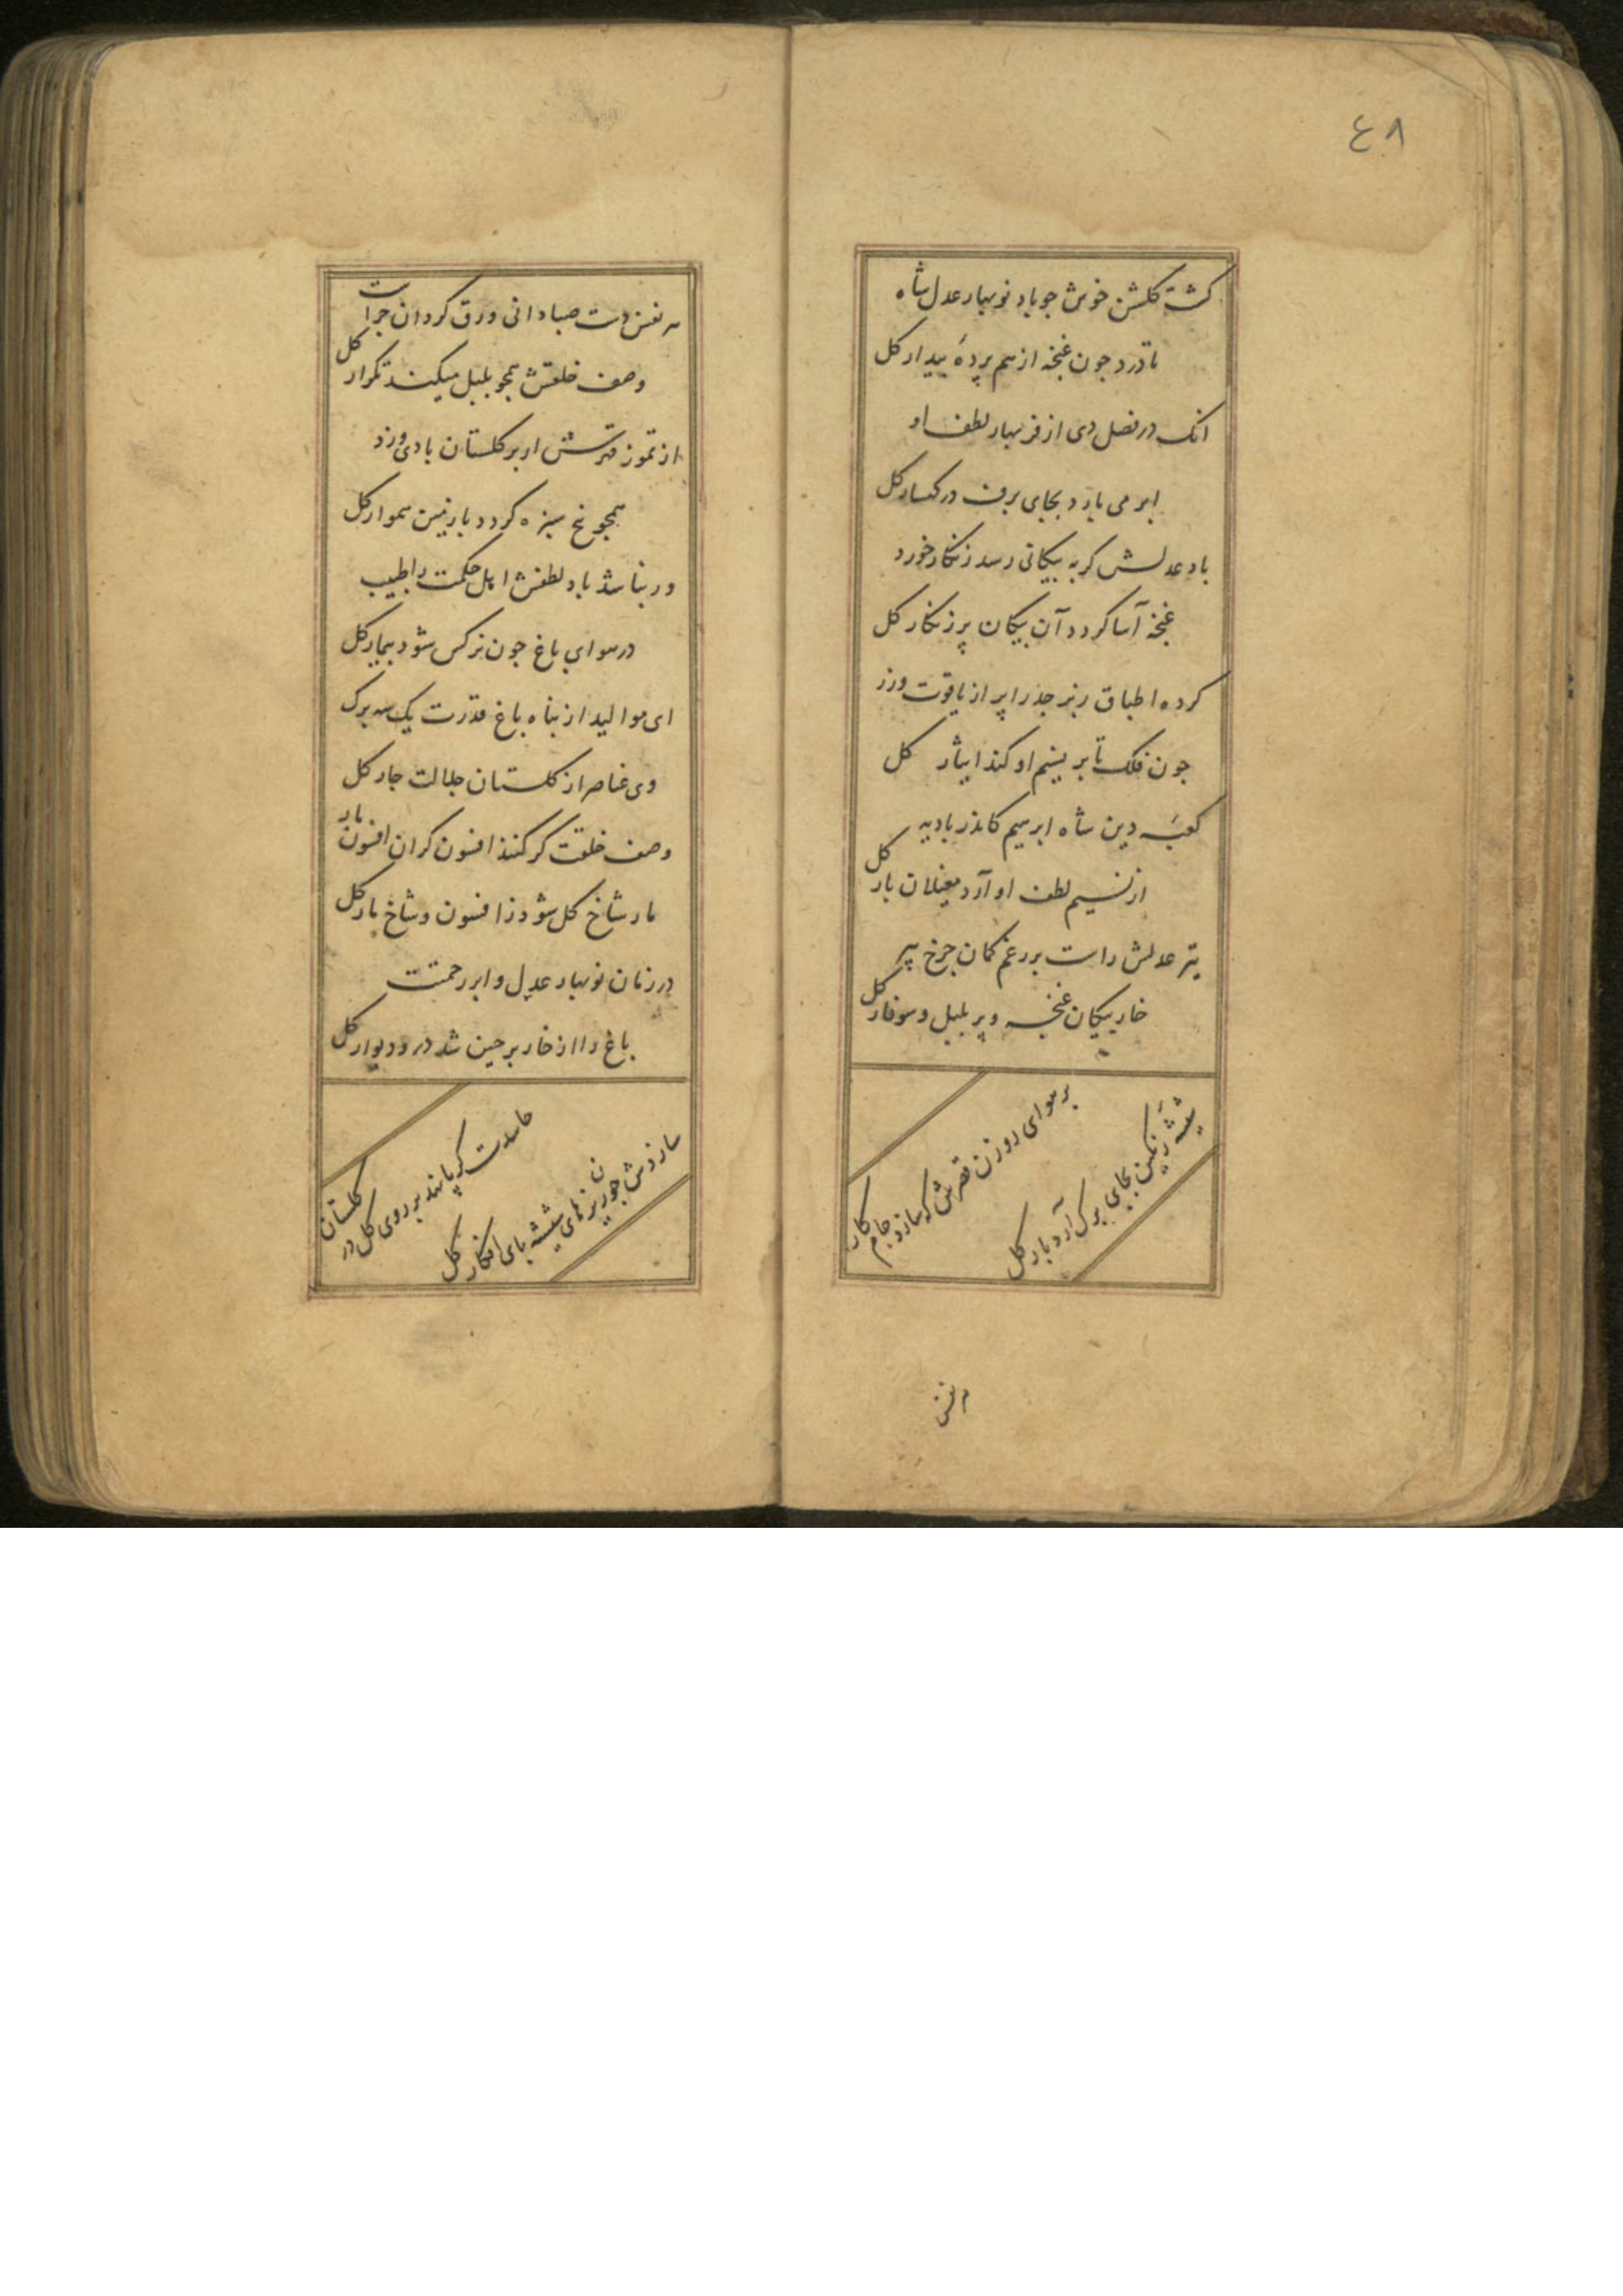 ٤٨
کشت کلشن خوش جو باد نوبهار عدل شاه
تا درد جون غنچه از هم پردهٔ پندار کل
انک در فصل دی از فر بهار لطف او
ابر می بارد بجای برف در کهسار کل
باد عدلش کر به بیکانی رسد زنکار خورد
غنچه آسا کردد آن بیکان پر زنکار کل
کرده اطباق زبرجد را پر از یاقوت وزر
جون فلک تا بر نسیم او کند ایثار کل
کعبهٔ دین شاه ابرهیم کاندر بادیه
از نسیم لطف او آرد مغیلان بار کل
تیر عدلش راست بر رغم کمان جرخ پیر
خار بیکان غنچه و پر بلبل و سوفار کل
بر هوای روزن قصرش که سازد جام کار
شیشهٔ رنکین بجای برک آرد بار کل
هر نفس
هر نفس دست صبا دانی ورق کردان جراست
وصف خلقش همجو بلبل میکند تکرار کل
از تموز قهرش ار بر کلستان بادی وزد
همجو نخ سبزه کردد با زمین هموار کل
ور نباشد باد لطفش اهل حکمت را طبیب
در هوای باغ جون نرکس شود بیمار کل
ای موالید از بناه باغ قدرت یک سه برک
وی عناصر از کلستان جلالت جار کل
وصف خلقت کر کنند افسون کران افسون مار
مار شاخ کل شود ز افسون و شاخ مار کل
در زمان نوبهار عدل و ابر رحمتت
باغ را از خار برجین شد در و دیوار کل
حاسدت کر پا نهد بر روی کل در کلستان
سازدش جون ریزهای شیشه بای افکار کل